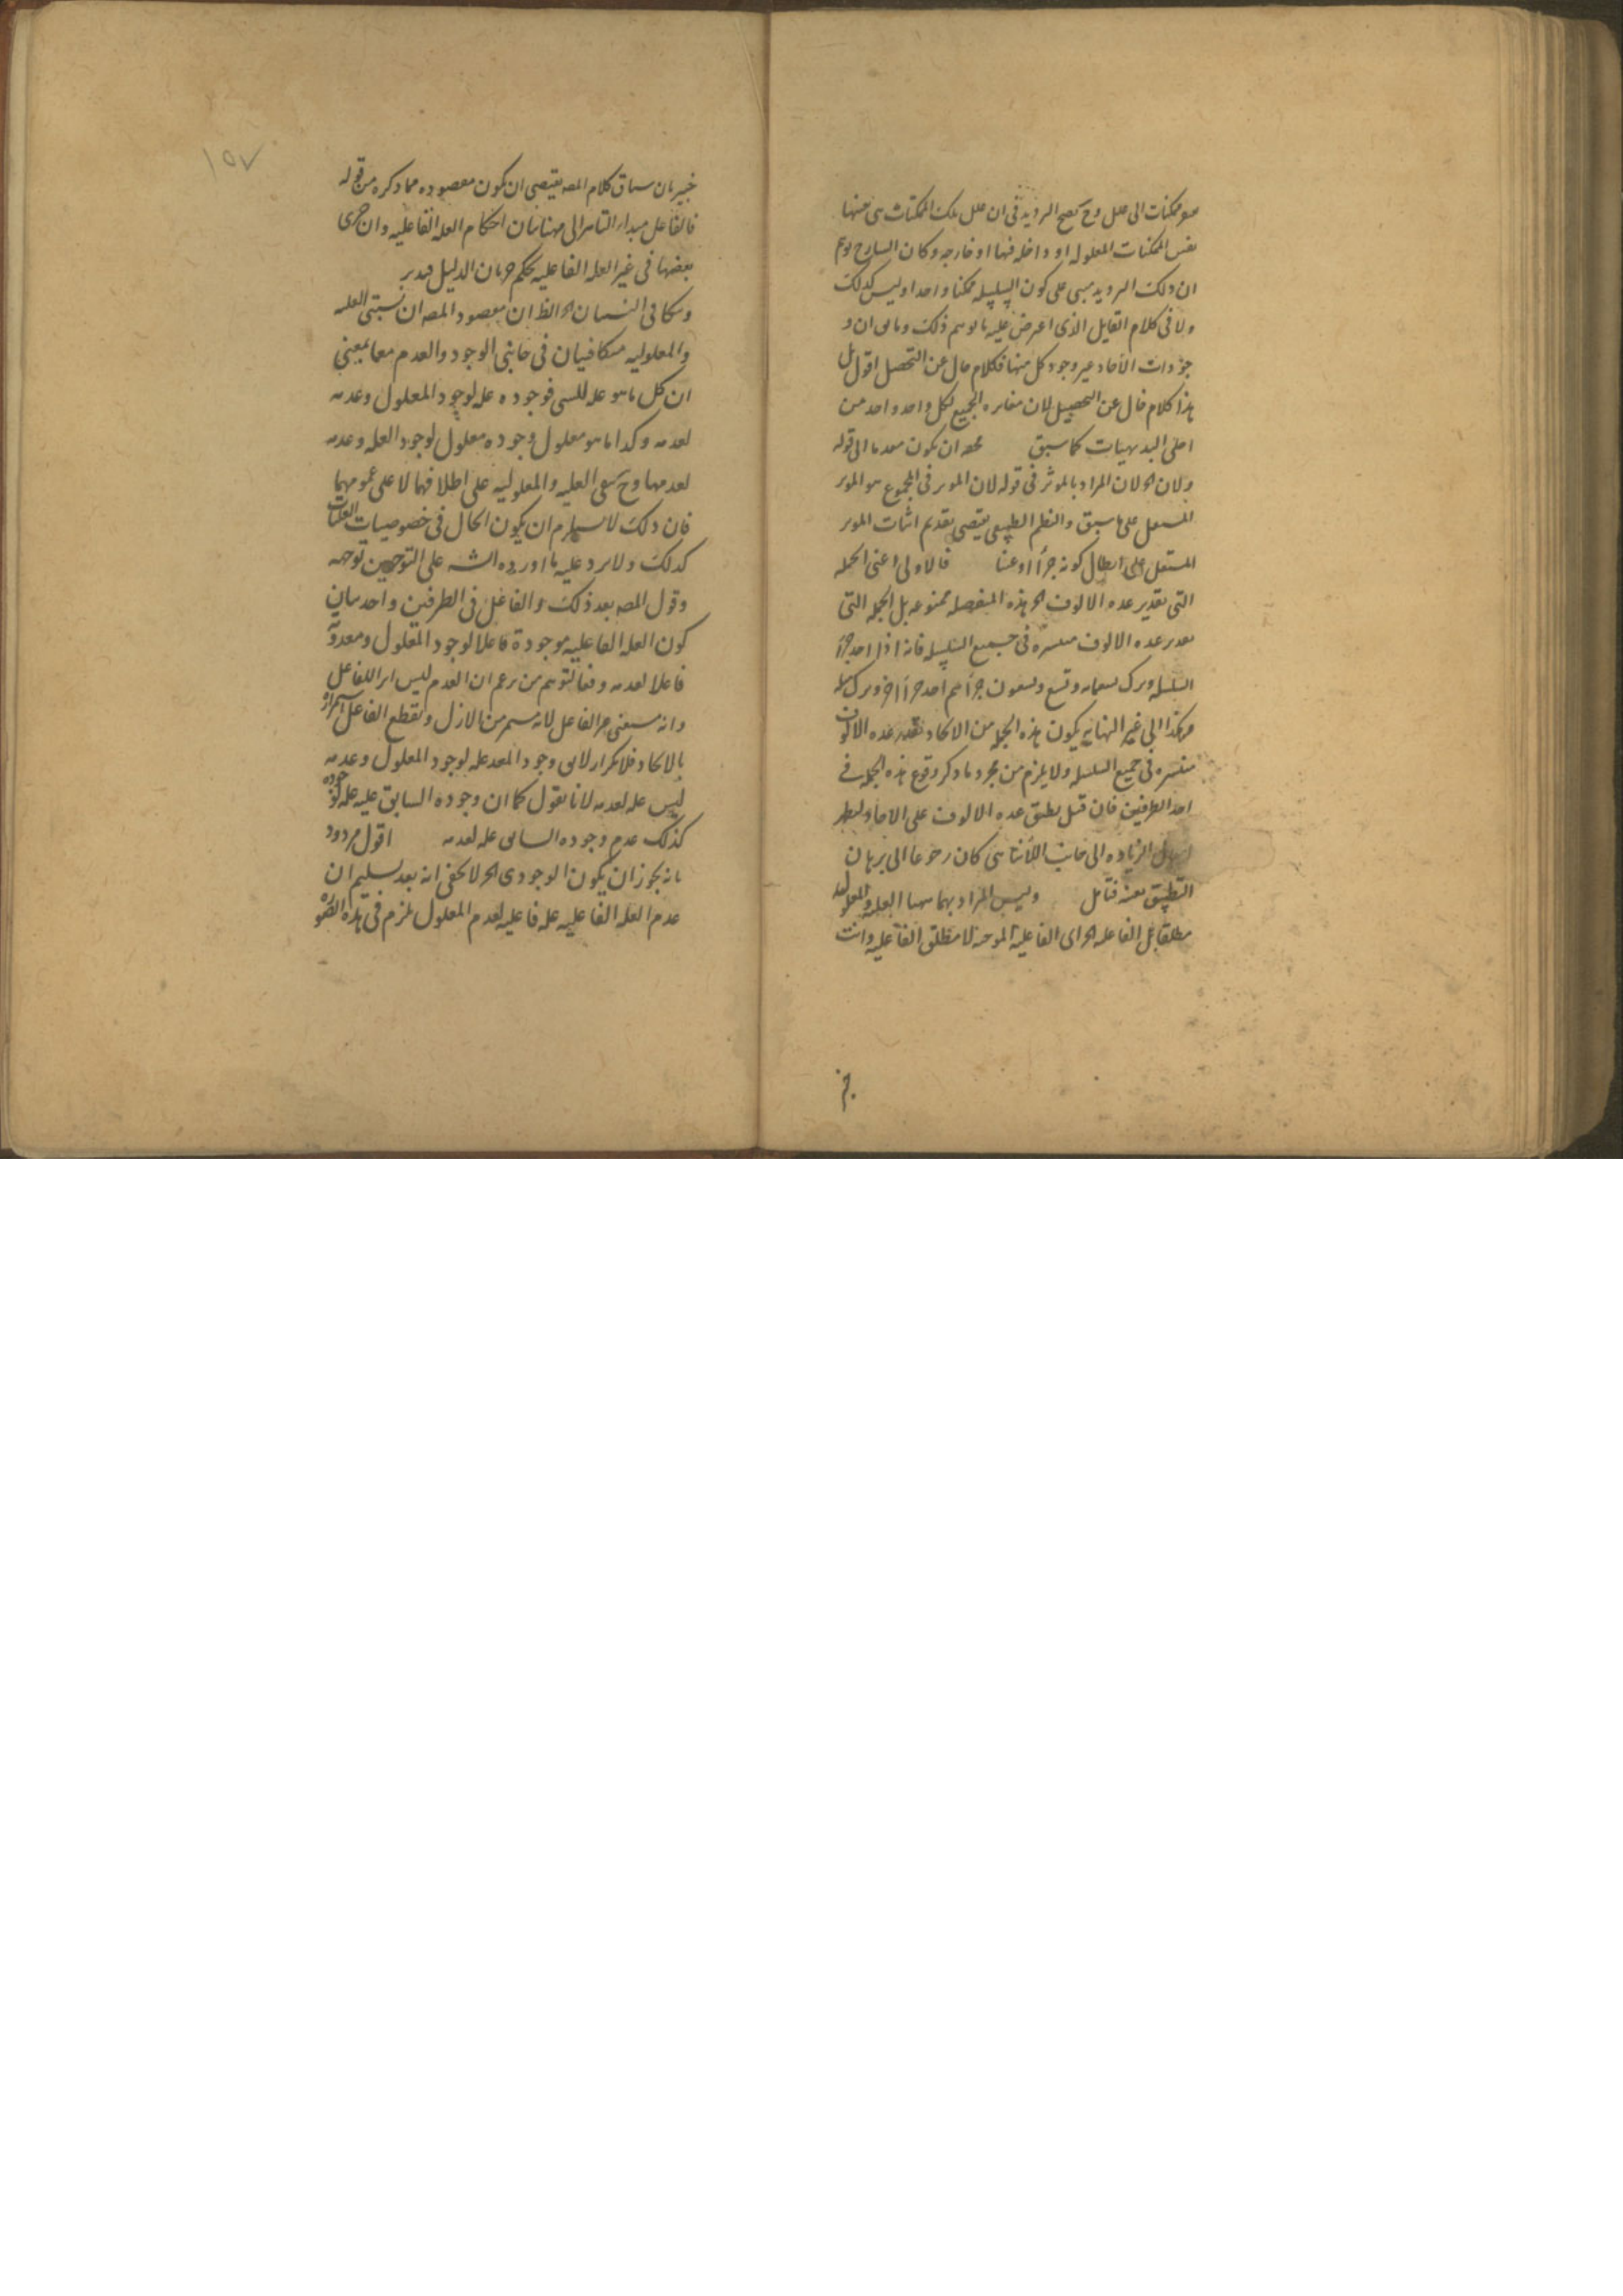 هو ممكنات الى علل وح يصح الترديد فى ان علل تلك الممكنات هى عينها
نفس الممكنات المعلولة او داخلة فيها او خارجة وكان الشارح توهم
ان ذلك الترديد مبنى على كون السلسلة ممكنا واحدا وليس كذلك
ولا فى كلام القايل الذى اعترض عليه ما يوهم ذلك وما
وجودات الآحاد غير وجود كل منها فكلام خال عن التحصيل اقول بل
هذا كلام خال عن التحصيل لان مغايرة الجميع لكل واحد واحد من
اجلى البديهيات كما سبق ان يكون معدما الى قوله
ولان الخ لان المراد بالموثر فى قوله لان الموثر فى المجموع هو الموثر
المستقل على ما سبق والنظم الطبيعى يقتضى تقديم اثبات الموثر
المستقل على ابطال كونه جزأ او عينا فالاولى اعنى الجملة
التى بقدر عدة الالوف الخ هذه المنفصلة ممنوعة بل الجملة التى
بقدر عدة الالوف منتشرة فى جميع السلسلة فانه اذا اخذ جزأ
السلسلة وترك تسعمائة وتسع وتسعون جزأ ثم اخذ جزأ آخر وترك مثله
وهكذا الى غير النهاية يكون هذه الجملة من الآحاد بقدر عدة الالوف
منتشرة فى جميع السلسلة ولا يلزم من مجرد ما ذكر وقوع هذه الجملة فى
احد الطرفين فان قيل يطبق عدة الالوف على الآحاد ليظهر
الزيادة الى جانب اللاتناهى كان رجوعا الى برهان
التطبيق بعينه فتامل وليس المراد بهما ههنا العلية والمعلولية
مطلقا بل الفاعلية الخ اى الفاعلية الموجبة لا مطلق الفاعلية وانت
١٥٧
خبير بان سياق كلام المصه يقتضى ان يكون مقصوده مما ذكره من قوله
فالفاعل مبدأ التاثير الى هنا بيان احكام العلة الفاعلية وان جرى
بعضها فى غير العلة الفاعلية بحكم جريان الدليل فتدبر
وتكافى النسبتان الخ الظ ان مقصود المصه ان نسبتى العلية
والمعلولية متكافيتان فى جانبى الوجود والعدم معا بمعنى
ان كل ما هو علة لشىء فوجوده علة لوجود المعلول وعدمه
لعدمه وكذا ما هو معلول وجوده معلول لوجود العلة وعدمه
لعدمها وح يبقى العلية والمعلولية على اطلاقهما لا على عمومهما
فان ذلك لا يستلزم ان يكون الحال فى خصوصيات العليات
كذلك ولا يرد عليه ما اورده الشه على التوجيهين توجيه
وقول المصه بعد ذلك والفاعل فى الطرفين واحد بيان
كون العلة الفاعلية موجودة فاعلا لوجود المعلول ومعدومة
فاعلا لعدمه دفعا لتوهم من زعم ان العدم ليس اثر اللفاعل
وانه مستغنى عن الفاعل لانه مستمر من الازل وتقطع الفاعل استمراره
بالايجاد فلا تكرار لا يق وجود المعد علة لوجود المعلول وعدمه
ليس علة لعدمه لانا نقول كما ان وجوده السابق عليه علة لوجوده
كذلك عدم وجوده السابق علة لعدمه اقول مردود
بانه يجوز ان يكون الوجودى الخ لا يخفى انه بعد تسليم ان
عدم العلة الفاعلية علة فاعلية لعدم المعلول يلزم فى هذه الصورة